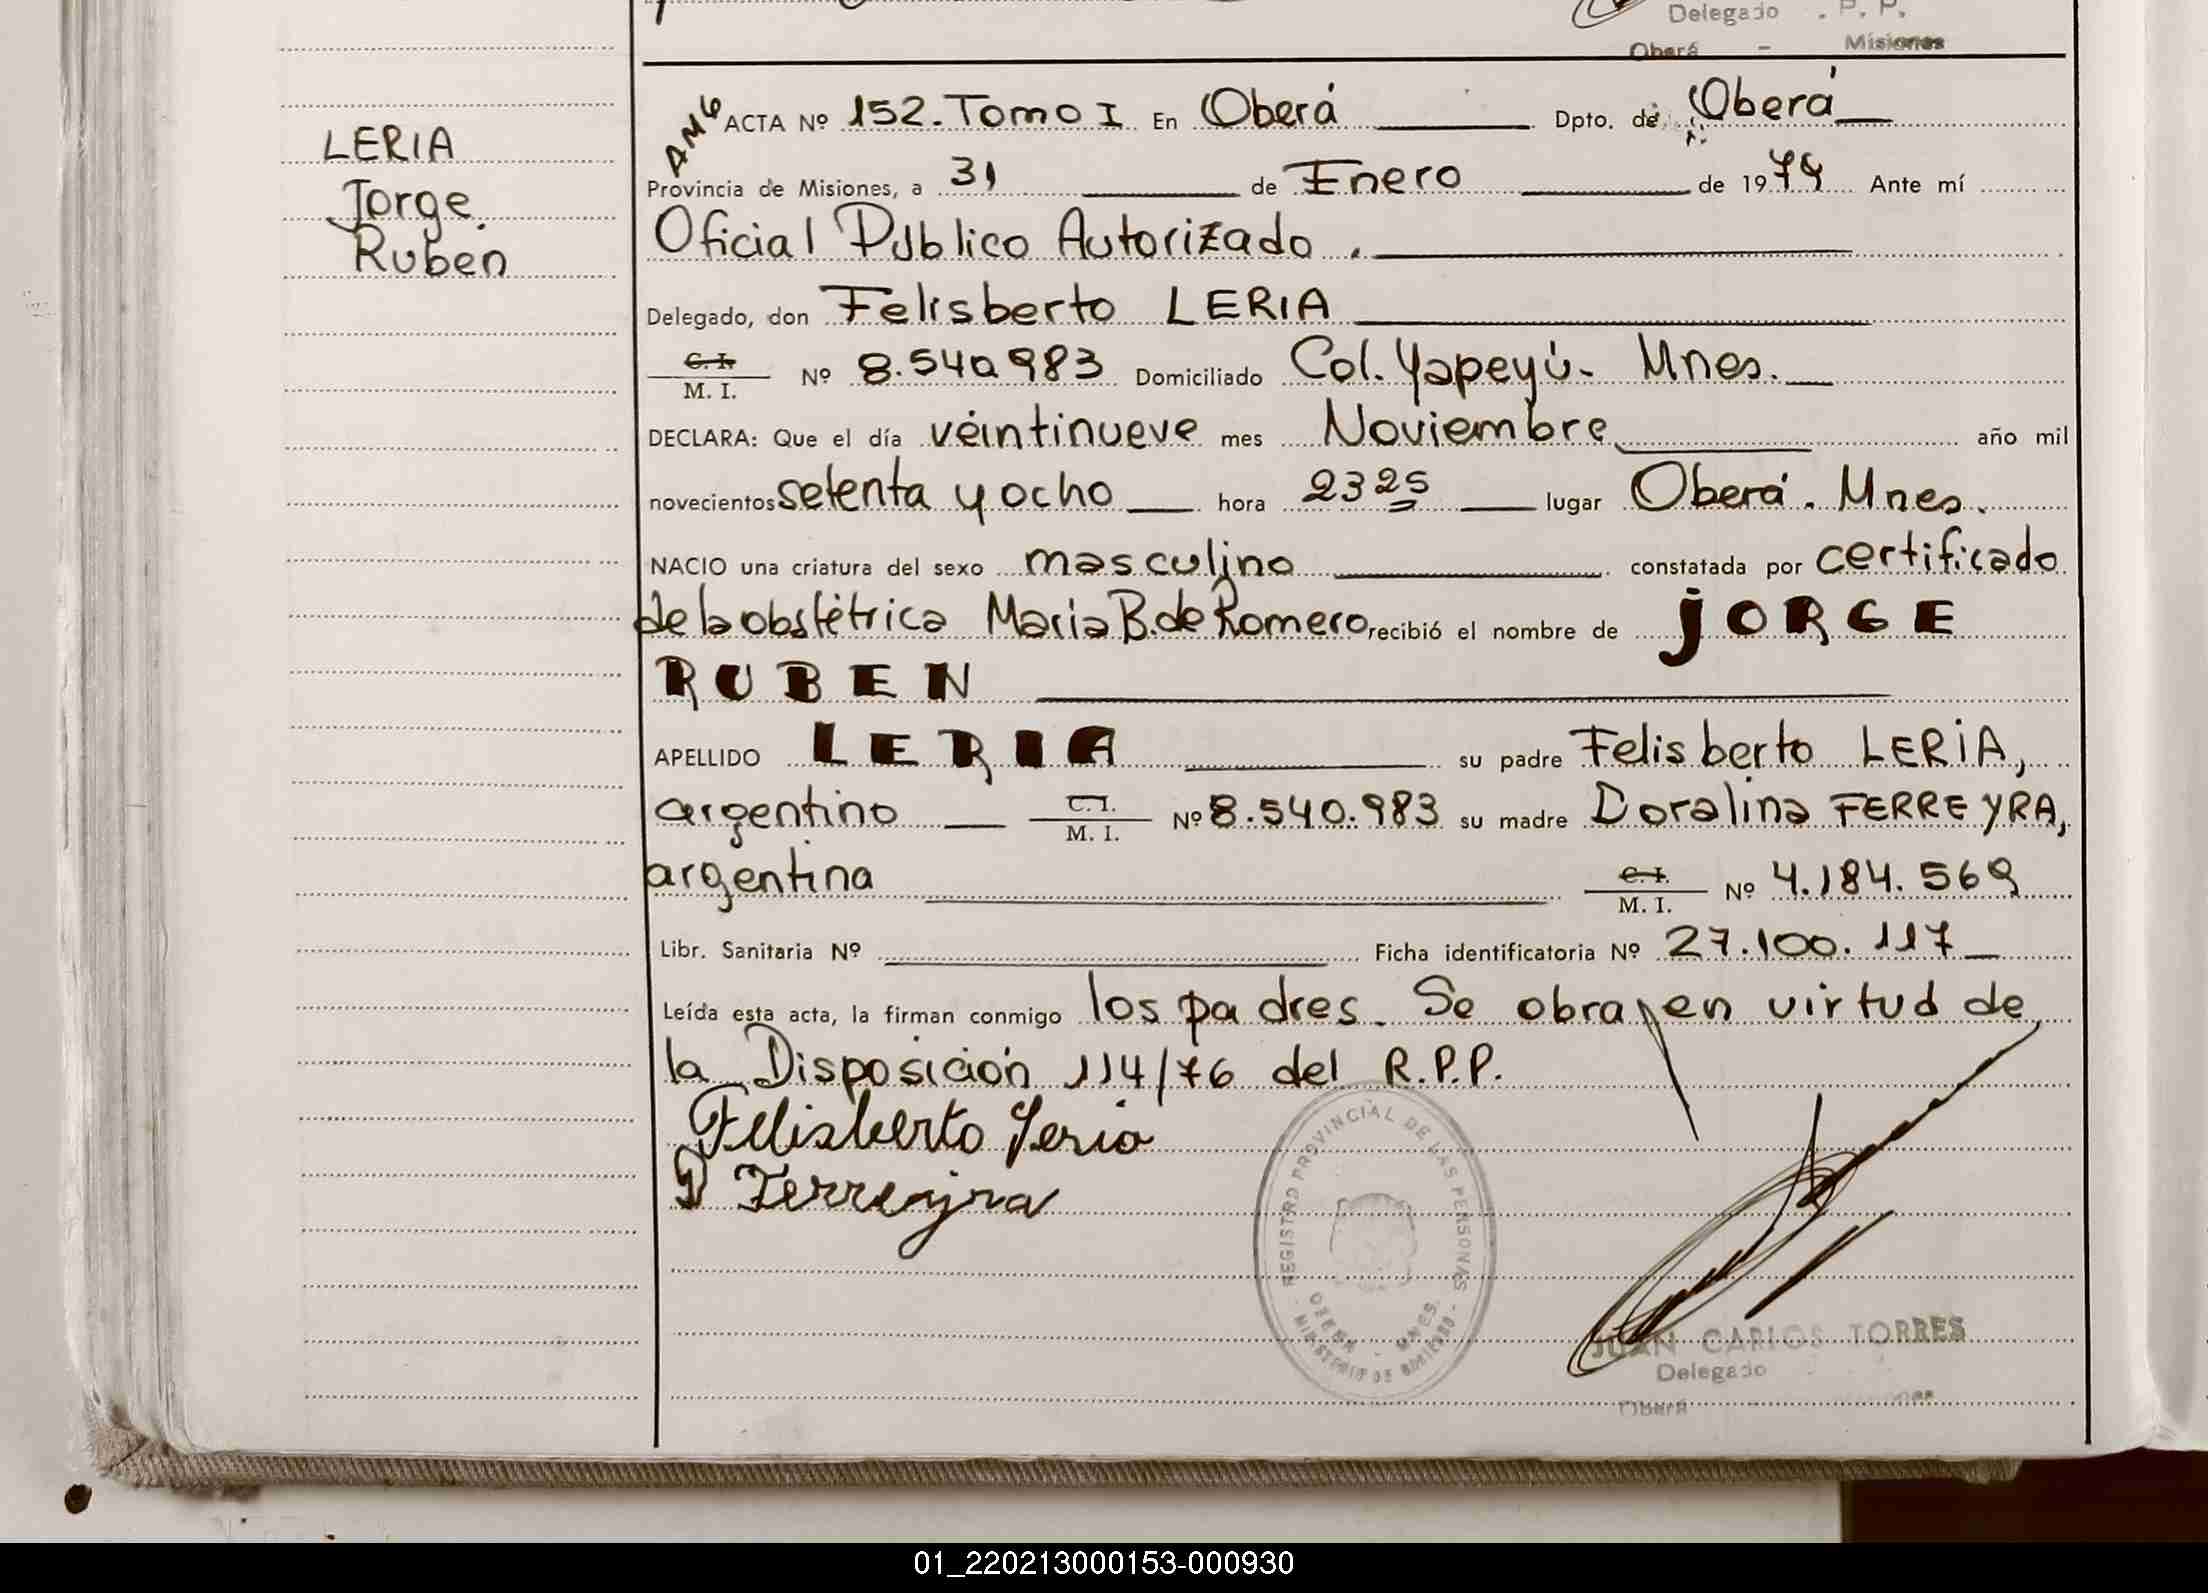 Delegado . P. P.
Oberá - Misiones
LERIA
Jorge
Ruben
AMG ACTA Nº 152. Tomo I En Oberá Dpto. de Oberá
Provincia de Misiones, a 31 de Enero de 1979 Ante mí
Oficial Público Autorizado.
Delegado, don Felisberto LERIA
C. I. M. I. Nº 8.540983 Domiciliado Col. Yapeyú - Mnes.
DECLARA: Que el día veintinueve mes Noviembre año mil
novecientos setenta y ocho hora 2325 lugar Oberá. Mnes.
NACIO una criatura del sexo masculino constatada por certificado
de la obstétrica Maria B. de Romero recibió el nombre de JORGE
RUBEN
APELLIDO LERIA su padre Felisberto LERIA,
argentino C. I. M. I. Nº 8.540.983 su madre Doralina FERREYRA,
argentina C. I. M. I. Nº 4.184.569
Libr. Sanitaria Nº Ficha identificatoria Nº 27.100.117
Leída esta acta, la firman conmigo los padres. Se obra en virtud de
la Disposición 114/76 del R.P.P.
Felisberto Leria
D Ferreyra
REGISTRO PROVINCIAL DE LAS PERSONAS
OBERA - MNES.
- MINISTERIO DE GOBIERNO -
JUAN CARLOS TORRES
Delegado
Oberá Misiones
01_220213000153-000930